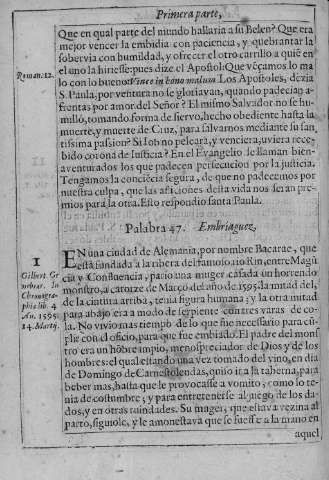 Primera parte,
Que en qual parte del mundo hallaria a su Belen? Que era
mejor vencer la embidia con paciencia, y quebrantar la
sobervia con humildad, y ofrecer el otro carrillo a quiē en
el uno la hiriesse: pues dize el Apostol: Que vēçamos lo ma
Roman. 12.
lo con lo bueno: Vince in bono malum. Los Apostoles, dezia
S. Paula, por ventura no se gloriavan, quando padecian a-
frentas por amor del Señor? El mismo Salvador no se hu-
milló, tomando forma de siervo, hecho obediente hasta la
muerte, y muerte de Cruz, para salvarnos mediante su san-
tissima passion? Si Iob no peleara, y venciera, uviera recebi
bido corona de Iusticia? En el Evangelio se llaman bien-
aventurados los que padecen persecucion por la justicia.
Tengamos la conciēcia segura, de que no padecemos por
nuestra culpa, que las aflicciones desta vida nos seran pre-
mios para la otra. Esto respondio santa Paula.
Palabra 47. Embriaguez.
1
EN una ciudad de Alemania, por nombre Bacarae, que
està fundada à la ribera del famoso rio Rin, entre Magū
cia y Constancia, pario una muger casada un horrendo
monstro, a catorze de Março del año de 1595. la mitad del,
de la cintura arriba, tenia figura humana; y la otra mitad
para abajo era a modo de serpiente con tres varas de co-
la. No vivio mas tiempo de lo que fue necessario para cū-
plir con el oficio, para que fue embiado. El padre del mons
tro era un hōbre impio, menospreciador de Dios y de los
hombres: el qual estando una vez tomado del vino, en dia
de Domingo de Carnestolendas, quiso ir a la taberna, para
beber mas, hasta que le provocasse a vomito, como lo te-
nia de costumbre; y para entretenerse al juego de los da-
dos, y en otras ruindades. Su muger, que estava vezina al
parto, siguiole, y le amonestava que se fuesse a la mano en
aquel
Gilbert Ge
nebrar. In
Chronogra
phia lib. 4
An. 1595.
14. Martij.